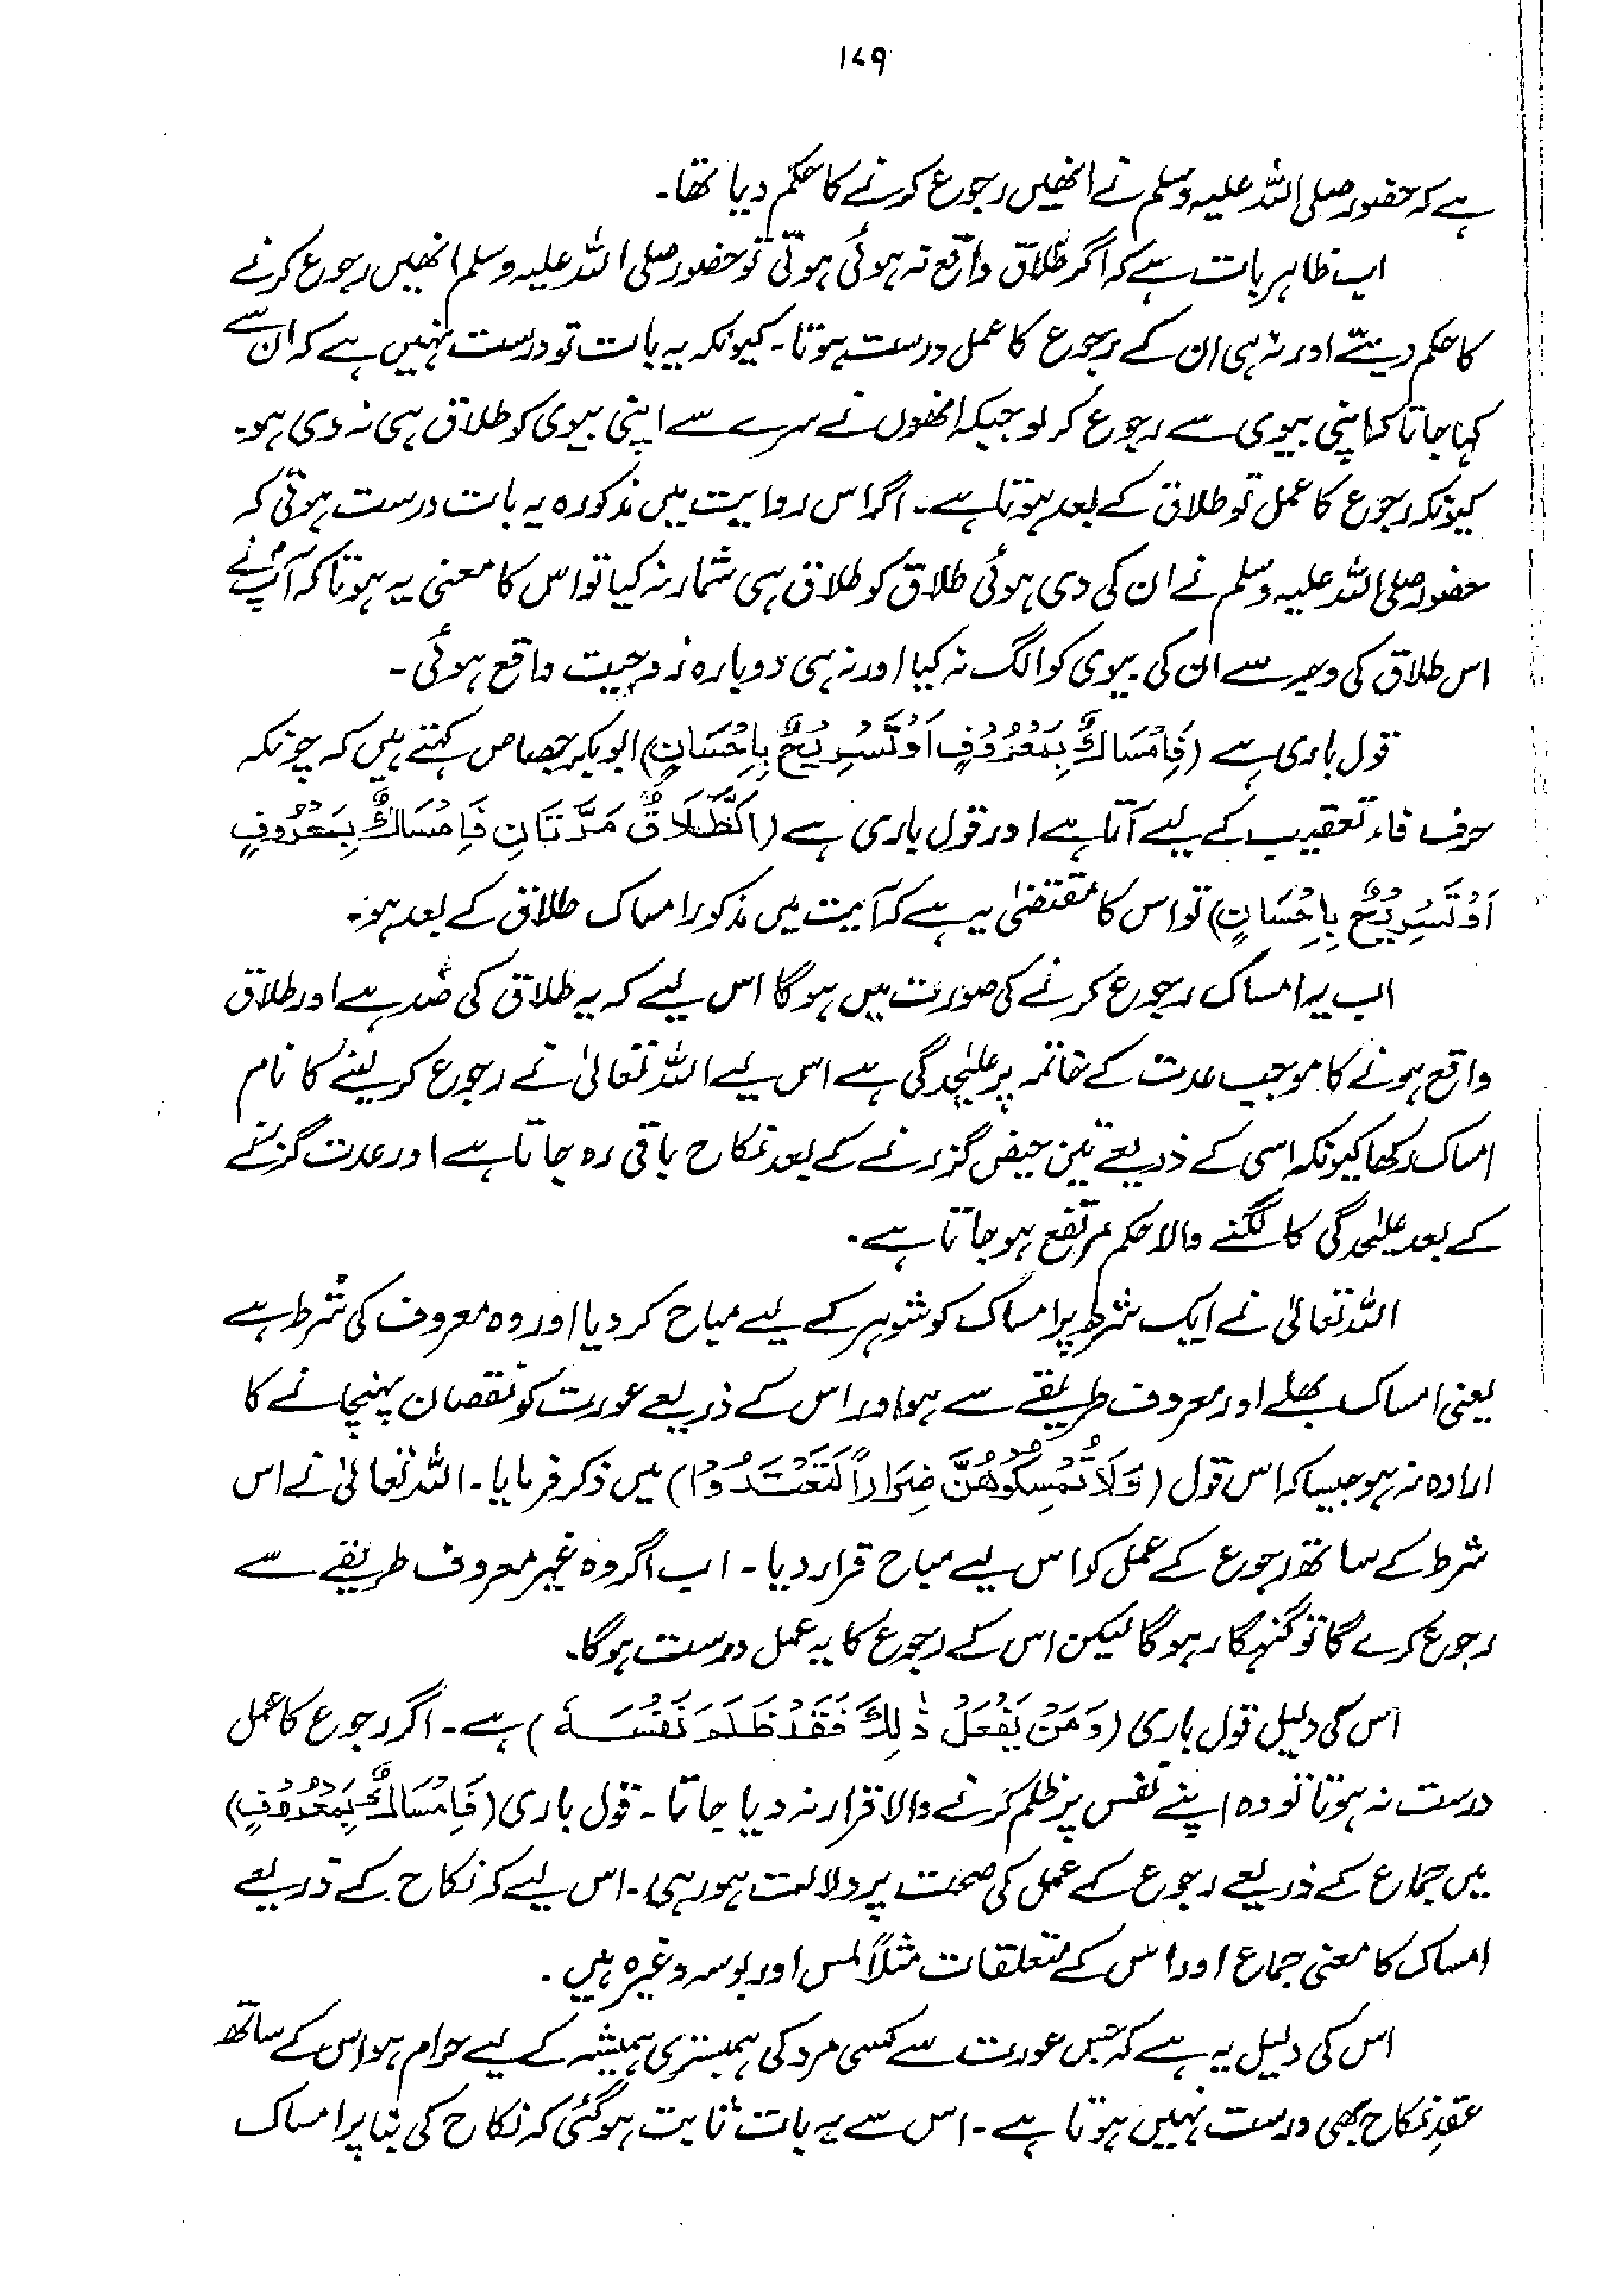 ۱۷۹
ہے کہ حضور صلی اللہ علیہ وسلم نے انھیں رجوع کرنے کا حکم دیا تھا۔
اب ظاہر بات ہے کہ اگر طلاق واقع نہ ہوئی ہوتی تو حضور صلی اللہ علیہ وسلم انھیں رجوع کرنے
کا حکم دیتے اور نہ ہی ان کے رجوع کا عمل درست ہوتا۔ کیونکہ یہ بات تو درست نہیں ہے کہ ان سے
کہا جاتا کہ اپنی بیوی سے رجوع کر لو جبکہ انھوں نے سرے سے اپنی بیوی کو طلاق ہی نہ دی ہو۔
کیونکہ رجوع کا عمل تو طلاق کے بعد ہوتا ہے۔ اگر اس روایت میں مذکورہ یہ بات درست ہوتی کہ
حضور صلی اللہ علیہ وسلم نے ان کی دی ہوئی طلاق کو طلاق ہی شمار نہ کیا تو اس کا معنی یہ ہوتا کہ آپؐ نے
اس طلاق کی وجہ سے ان کی بیوی کو الگ نہ کیا اور نہ ہی دوبارہ زوجیت واقع ہوئی۔
قول باری ہے (فَاِمْسَاكٌ بِمَعْرُوْفٍ اَوْ تَسْرِيْحٌ بِاِحْسَانٍ) ابوبکر جصاص کہتے ہیں کہ چونکہ
حرف فاء تعقیب کے لیے آتا ہے اور قول باری ہے (اَلطَّلَاقُ مَرَّتَانِ فَاِمْسَاكٌ بِمَعْرُوْفٍ
اَوْ تَسْرِيْحٌ بِاِحْسَانٍ) تو اس کا مقتضیٰ یہ ہے کہ آیت میں مذکور امساک طلاق کے بعد ہو۔
اب یہ امساک رجوع کرنے کی صورت میں ہوگا اس لیے کہ یہ طلاق کی ضد ہے اور طلاق
واقع ہونے کا موجب عدت کے خاتمہ پر علیٰحدگی ہے اس لیے اللہ تعالیٰ نے رجوع کر لینے کا نام
امساک رکھا کیونکہ اسی کے ذریعے تین حیض گزرنے کے بعد نکاح باقی رہ جاتا ہے اور عدت گزرنے
کے بعد علیٰحدگی کا لگنے والا حکم مرتفع ہو جاتا ہے۔
اللہ تعالیٰ نے ایک شرط پر امساک کو شوہر کے لیے مباح کر دیا اور وہ معروف کی شرط ہے
یعنی امساک بھلے اور معروف طریقے سے ہو اور اس کے ذریعے عورت کو نقصان پہنچانے کا
ارادہ نہ ہو جیسا کہ اس قول (وَلَا تُمْسِكُوْهُنَّ ضِرَاراً لِّتَعْتَدُوْا) میں ذکر فرمایا۔ اللہ تعالیٰ نے اس
شرط کے ساتھ رجوع کے عمل کو اس لیے مباح قرار دیا۔ اب اگر وہ غیر معروف طریقے سے
رجوع کرے گا تو گنہگار ہوگا لیکن اس کے رجوع کا یہ عمل درست ہوگا۔
اس کی دلیل قول باری (وَمَنْ يَّفْعَلْ ذٰلِكَ فَقَدْ ظَلَمَ نَفْسَهٗ) ہے۔ اگر رجوع کا عمل
درست نہ ہوتا تو وہ اپنے نفس پر ظلم کرنے والا قرار نہ دیا جاتا۔ قول باری (فَاِمْسَاكٌ بِمَعْرُوْفٍ)
میں جماع کے ذریعے رجوع کے عمل کی صحت پر دلالت ہو رہی۔ اس لیے کہ نکاح کے ذریعے
امساک کا معنی جماع اور اس کے متعلقات مثلاً لمس اور بوسہ وغیرہ ہیں۔
اس کی دلیل یہ ہے کہ جس عورت سے کسی مرد کی ہمبستری ہمیشہ کے لیے حرام ہو اس کے ساتھ
عقدِ نکاح بھی درست نہیں ہوتا ہے۔ اس سے یہ بات ثابت ہوگئی کہ نکاح کی بنا پر امساک